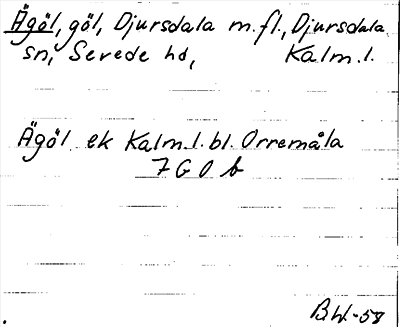 Ägöl, göl, Djursdala m.fl., Djursdala
sn, Sevede hd, Kalm.l.
Ägöl ek Kalm.l. bl. Orremåla
7 G 0 b
B.W.-58